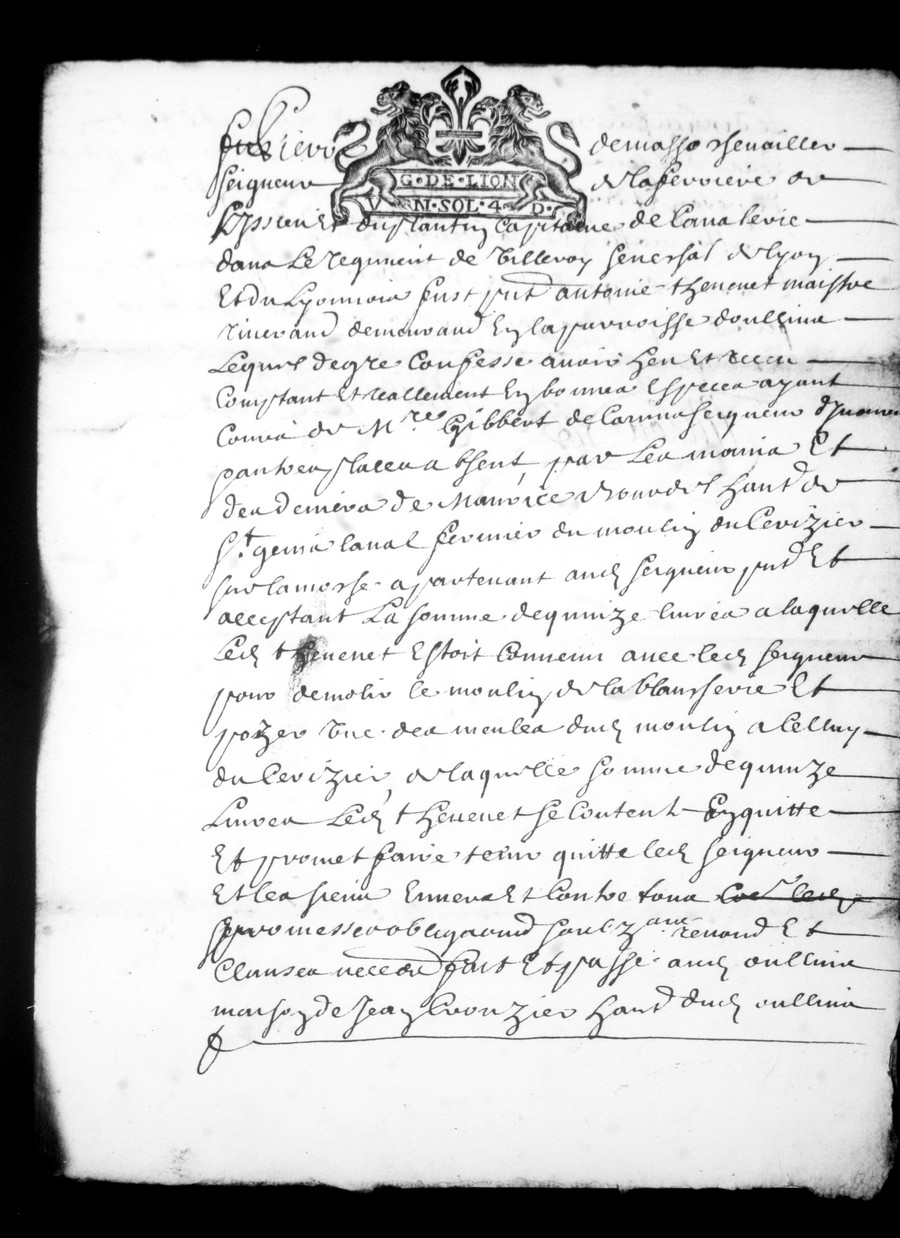 de masso chevallier
G·DE·LION
seigneur de la ferriere de
VN·SOL·4·D·
et du plantin Capitaine de Cavalerie
dans Le regiment de Villeroy senechal de lyon
Et du Lyonnois fust pnt antoine thevenet maistre
demeurand En la parroisse doullins
Lequel de gre Confesse avoir heu et receu
Comptant Et reallement En bonnes Especes ayant
Cours de Mre Gibbert de seigneur
par les mains Et
des deniers de Maurice habt de
st genis laval fermier du moulin du Cerizier
sur la morse apartenant aud seigneur pnt Et
acceptant La somme de quinze livres a laquelle
Led thevenet Estoit Convenu avec led seigneur
pour demolir le moulin de la blanserie Et
pozer une des meules dud moulin a Celluy
du Cerizier, de laquelle somme de quinze
Livres Led thevenet se Content En quitte
Et promet faire tenir quitte led seigneur
Et les siens Envers Et Contre tous
promesses obligaons renond Et
Clauses necess fait Et passé aud oullins
maison de Jean Crouzier habt dud oullins